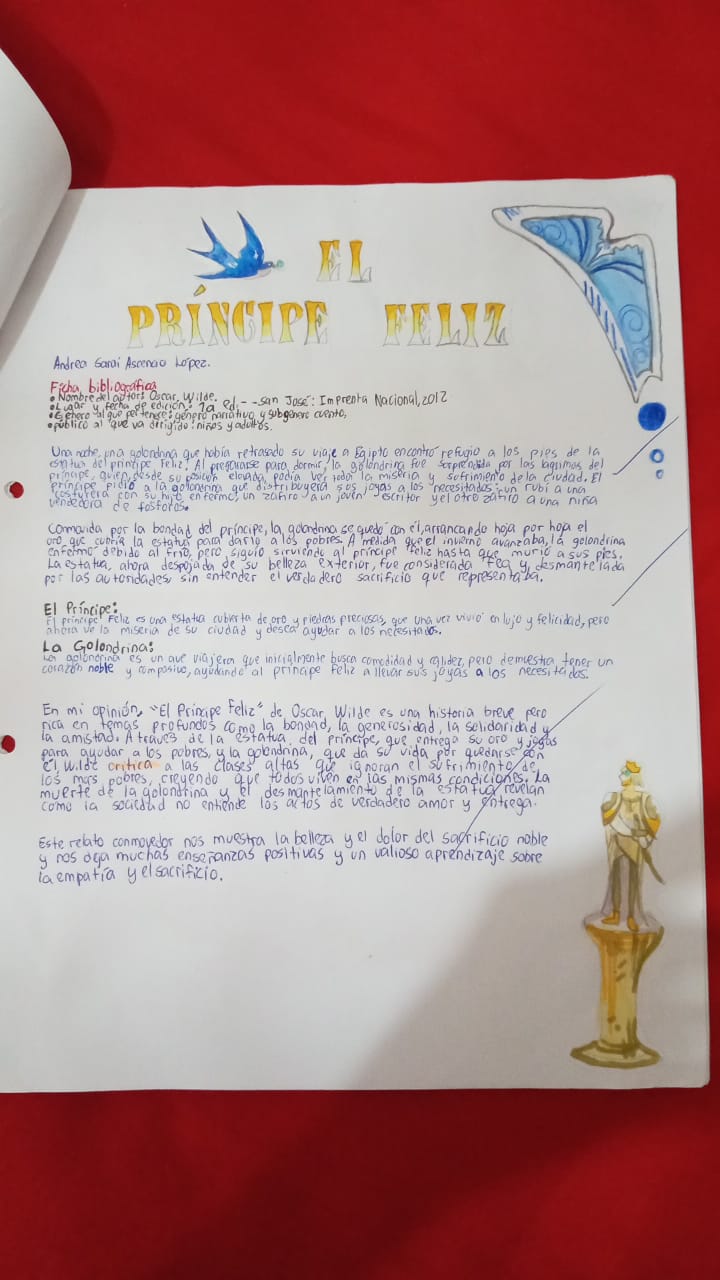 EL
PRÍNCIPE FELIZ
Andrea Sarai Ascencio López.
Ficha bibliográfica
• Nombre del autor: Oscar Wilde.
• Lugar y fecha de edición: 1a ed. - -San José: Imprenta Nacional, 2012
• Género al que pertenece: género narrativo y subgénero cuento,
• público al que va dirigido: niños y adultos.
Una noche, una golondrina que había retrasado su viaje a Egipto encontró refugio a los pies de la
estatua del príncipe Feliz. Al prepararse para dormir, la golondrina fue sorprendida por las lagrimas del
príncipe, quien, desde su posición elevada, podía ver toda la miseria y sufrimiento de la ciudad. El
príncipe pidió a la golondrina que distribuyera sus joyas a los necesitados: un rubí a una
costurera con su hijo enfermo, un zafiro a un joven escritor y el otro zafiro a una niña
vendedora de fosforos.
Conmovida por la bondad del príncipe, la golondrina se quedó con él, arrancando hoja por hoja el
oro que cubría la estatua para darlo a los pobres. A medida que el invierno avanzaba, la golondrina
enfermó debido al frío, pero siguió sirviendo al príncipe feliz hasta que murió a sus pies.
La estatua, ahora despojada de su belleza exterior, fue considerada fea y desmantelada
por las autoridades sin entender el verdadero sacrificio que representaba.
El Príncipe:
El príncipe Feliz es una estatua cubierta de oro y piedras preciosas, que una vez vivió en lujo y felicidad, pero
ahora ve la miseria de su ciudad y desea ayudar a los necesitados.
La Golondrina:
La golondrina es un ave viajera que inicialmente busca comodidad y calidez, pero demuestra tener un
corazón noble y compasivo, ayudando al príncipe Feliz a llevar sus joyas a los necesitados.
En mi opinión, "El Príncipe Feliz" de Oscar Wilde es una historia breve pero
rica en temas profundos como la bondad, la generosidad, la solidaridad y
la amistad. A través de la estatua del príncipe, que entrega su oro y joyas
para ayudar a los pobres, y la golondrina, que da su vida por quedarse con
él, Wilde critica a las clases altas que ignoran el sufrimiento de
los mas pobres, creyendo que todos viven en las mismas condiciones. La
muerte de la golondrina y el desmantelamiento de la estatua revelan
como la sociedad no entiende los actos de verdadero amor y entrega.
Este relato conmovedor nos muestra la belleza y el dolor del sacrificio noble
y nos deja muchas enseñanzas positivas y un valioso aprendizaje sobre
la empatía y el sacrificio.